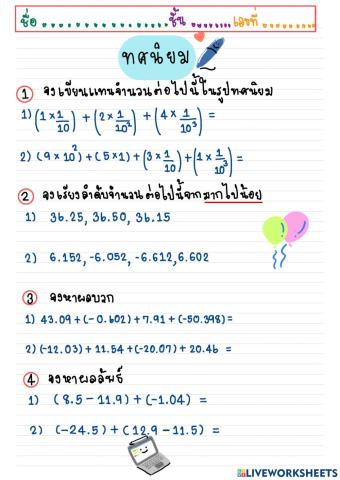 ชื่อ ........................ ชั้น ............ เลขที่ ............
ทศนิยม
① จงเขียนแทนจำนวนต่อไปนี้ในรูปทศนิยม
1) (1 × 1/10) + (2 × 1/10²) + (4 × 1/10³) =
2) (9 × 10²) + (5 × 1) + (3 × 1/10) + (1 × 1/10³) =
② จงเรียงลำดับจำนวนต่อไปนี้จากมากไปน้อย
1) 36.25, 36.50, 36.15
2) 6.152, -6.052, -6.612, 6.602
③ จงหาผลบวก
1) 43.09 + (-0.602) + 7.91 + (-50.398) =
2) (-12.03) + 11.54 + (-20.07) + 20.46 =
④ จงหาผลลัพธ์
1) (8.5 - 11.9) + (-1.04) =
2) (-24.5) + (12.9 - 11.5) =
LIVEWORKSHEETS